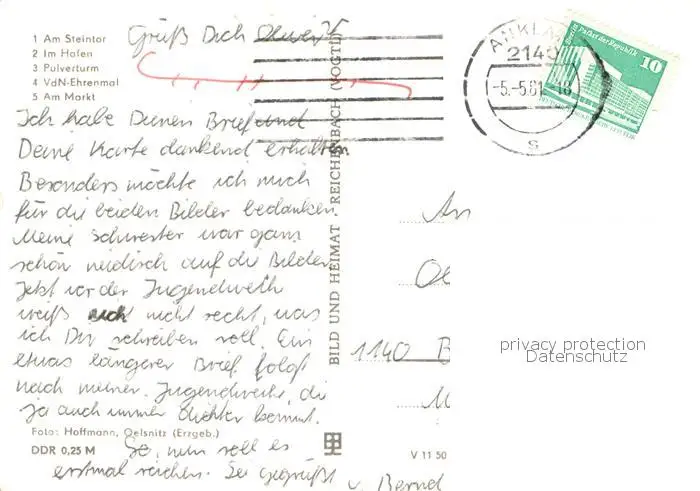 1 Am Steintor
2 Im Hafen
3 Pulverturm
4 VdN-Ehrenmal
5 Am Markt
Grüß Dich
Ich habe Deinen Brief und
Deine Karte dankend erhalten
Besonders möchte ich mich
für die beiden Bilder bedanken.
Meine Schwester war ganz
schön neidisch auf die Bilder
Jetzt vor der Jugendweih
weiß nicht recht, was
ich Dir schreiben soll. Ein
etwas längerer Brief folgt
nach meiner Jugendweihe, die
ja auch immer dichter kommt.
Foto: Hoffmann, Oelsnitz (Erzgeb.)
DDR 0,25 M
So, nun soll es
erstmal reichen. Sei gegrüßt
v. Bernd
BILD UND HEIMAT REICHENBACH (VOGTL
V 11 50
ANKLAM
2140
-5.-5.81-18
S
Berlin, Palast der Republik
10
An
1140 B
privacy protection
Datenschutz